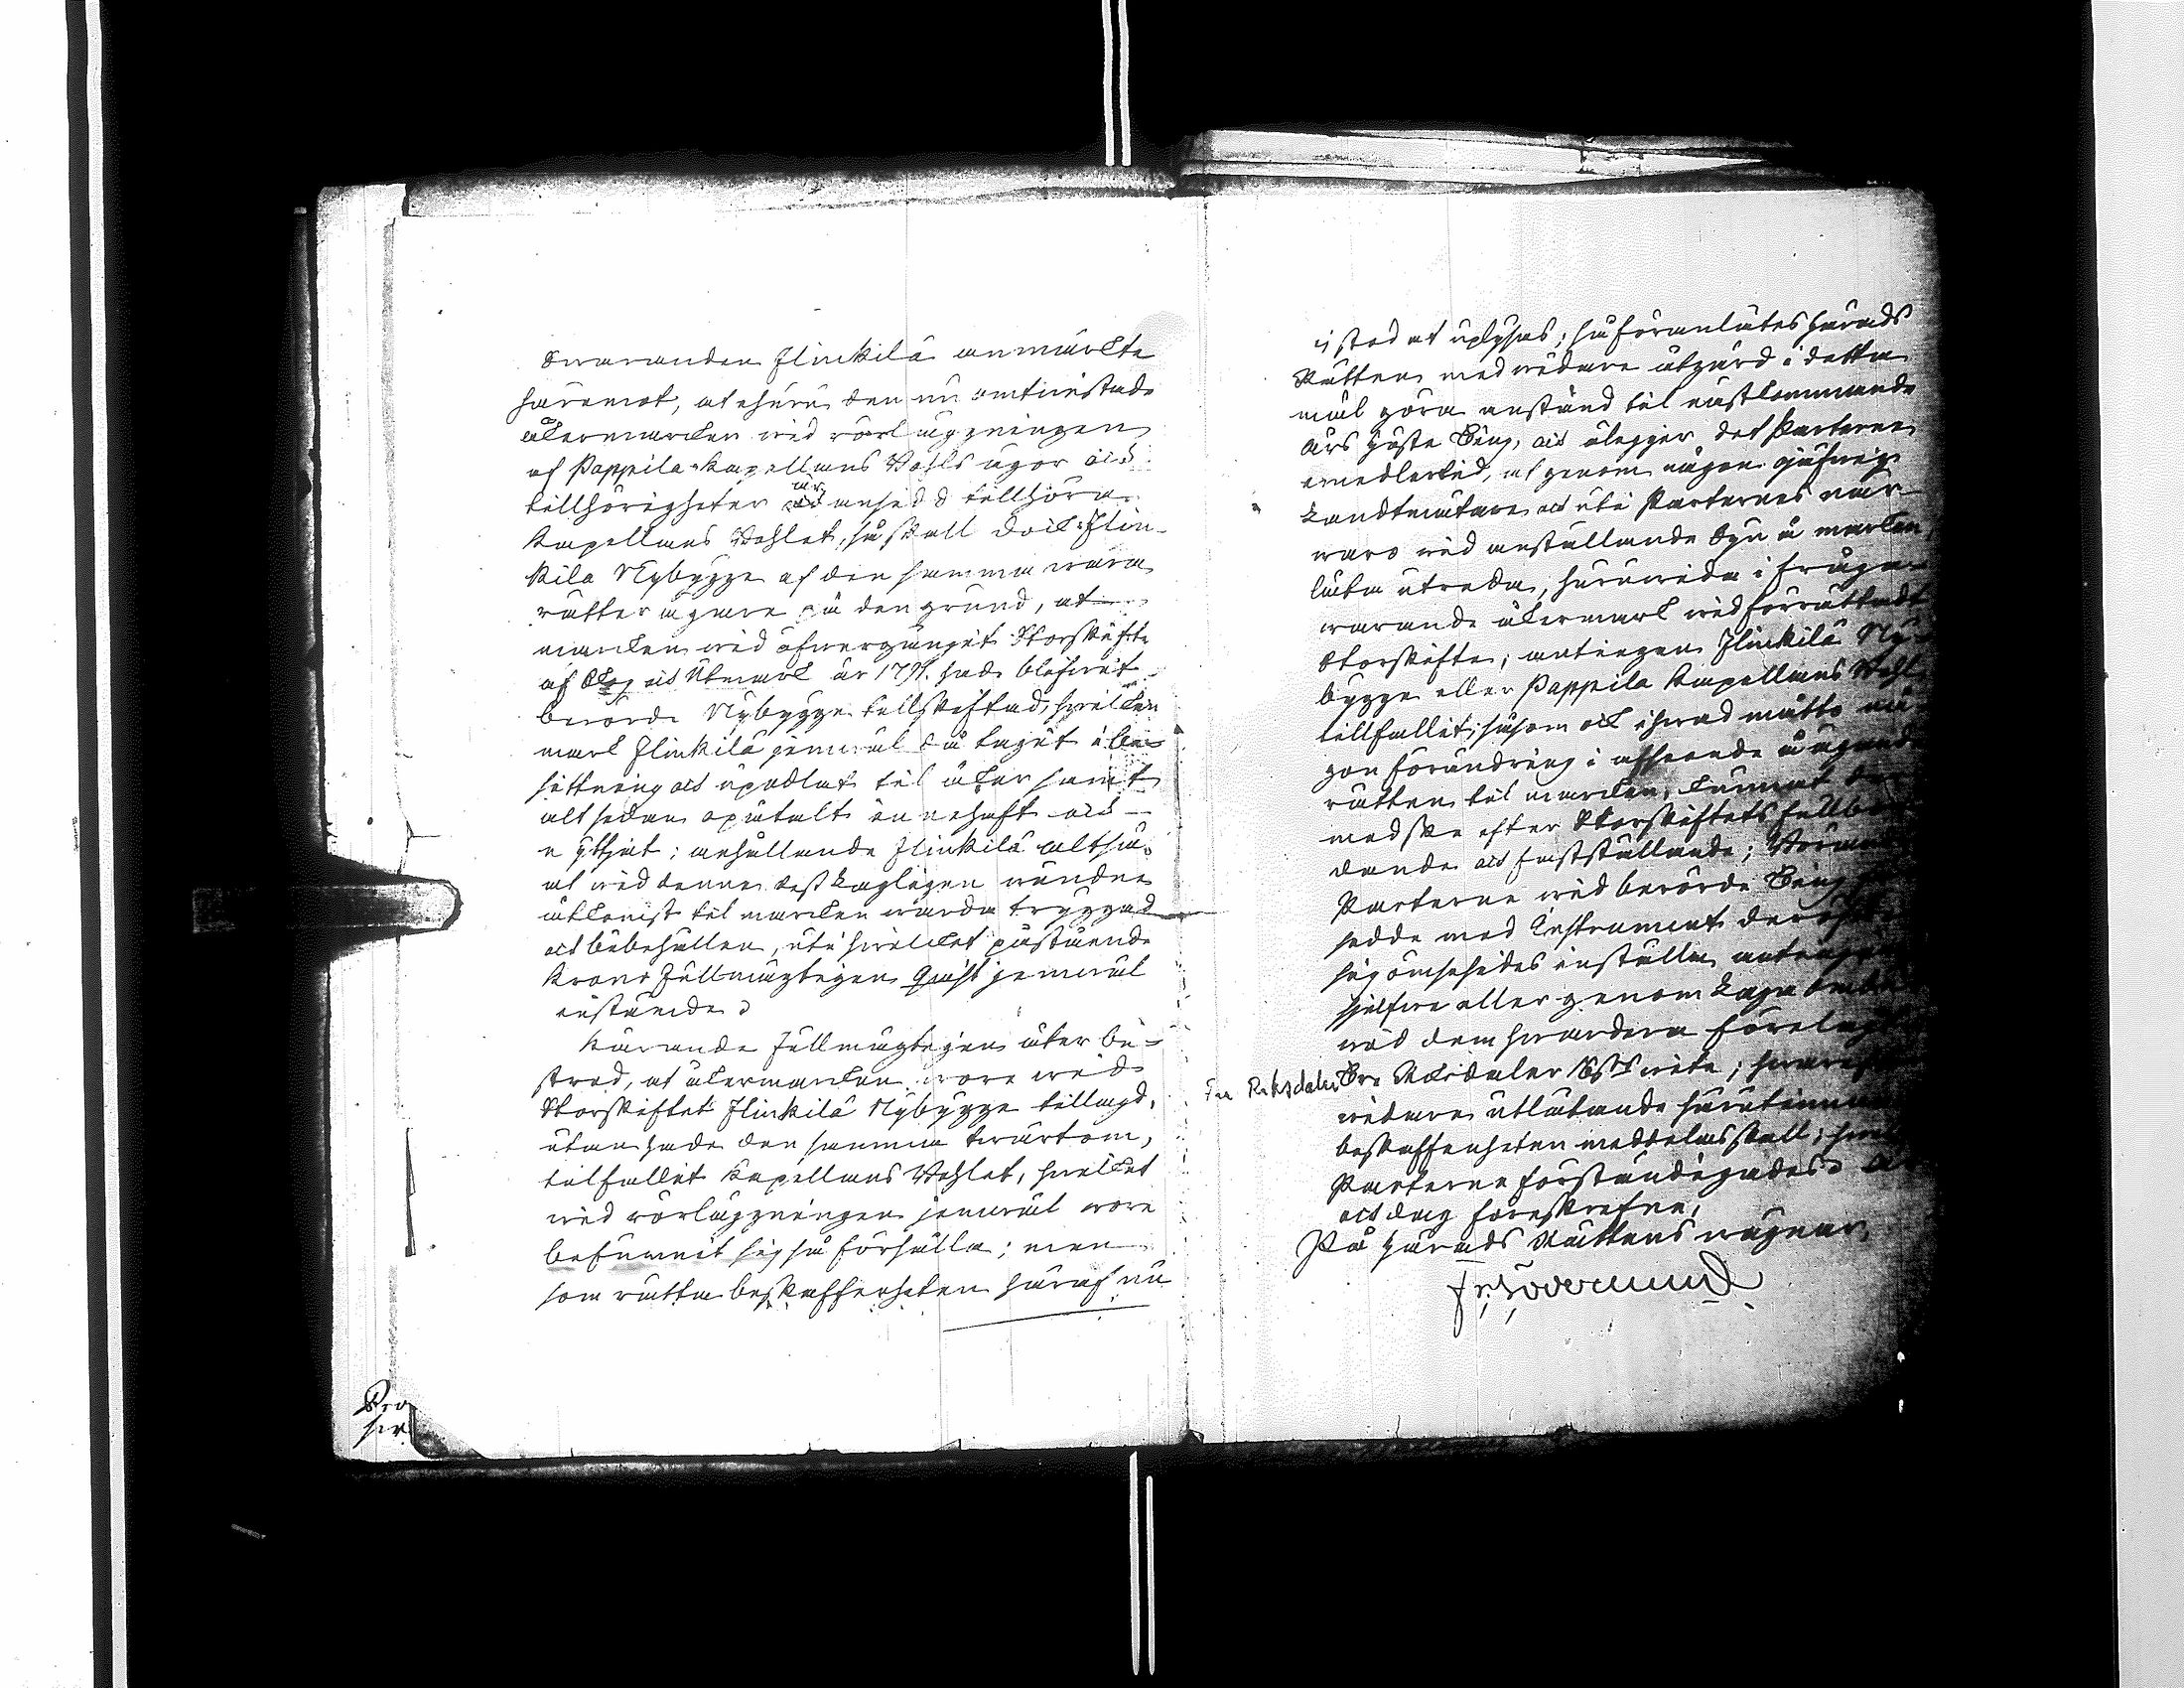 Swaranden Jlinkilä anmärkte
häremot, at ehuru den nu omtwistade
åkermarcken wid rörläggningen
af Pappila Kapellans Bohls ägor och
tillhörigheter är ansedd tillhöra
Kapellans Bohlet, så skall dock Jlin-
kila Nybygge af den samma wara
rätter ägare på den grund, at
marcken wid öfwergånget Storskifte
af Skog och Utmark år 179. hade blifwit
berörde Nybygge tillskiftad, hwilken
mark Jlinkilä jemwäl då tagit i be-
sittning och upodlat til åker samt
alt sedan opåtalt innehaft och
nyttjat; anhållande Jlinkilä altså
at wid denne dess lagligen wundne
åtkomst til marcken warda tryggad
och bibehållen, uti hwilcket påstående
Krono Fullmägtigen Qwist jemwäl
instämde.
Kärande Fullmägtigen åter be-
stred, at åkermarcken wore wid
Storskiftet Jlinkilä Nybygge tillagd,
utan hade den samma twärtom,
tilfallit Kapellans Bohlet, hwilcket
wid rörläggningen jemwäl wore
befunnit sig så förhålla; men
som rätta beskaffenheten häraf nu
ej stod at uplysas; så föranlåtes Härads
Rätten med widare åtgärd i detta
mål göra anstånd til nästkommande
års Höste Ting, och ålegger det Parterne
emedlertid, at genom någon ojäfwig
Landtmätare och uti Parternes när-
waro wid anställande Syn å marcken
låta utreda, huruwida i fråga
warande åkermark wid förrättadt
Storskifte, antingen Jlinkilä Ny-
bygge eller Pappila Kapellans Bohl
tillfallit, såsom ock ihwad måtto nå-
gon förändring i afseende å ägande
rätten til marcken, kunnat der
med ske efter Storskiftets fullbor-
dande och fastställande;
Parterne wid berörde Ting
sedde med Instrument
sig ömsesides inställa antingen
sjelfwe eller genom Laga ombud
wid dem hwardera förelagt
Tre Riksdaler Tre Riksdaler wite; hwar
widare utlåtande häruti
beskaffenheten meddelas skall; hwilcket
Parterne förständigades. År
och dag föreskrefne,
På Härads Rättens wägnar,